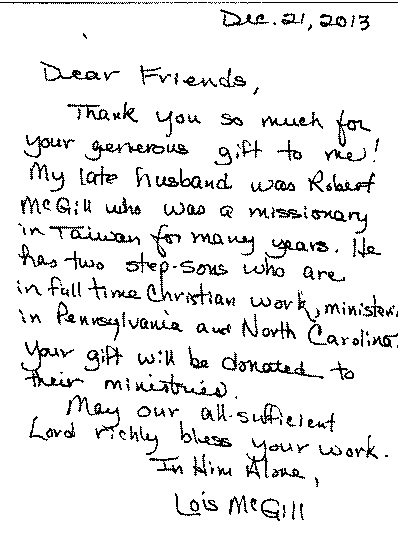 Dec. 21, 2013
Dear Friends,
Thank you so much for
your generous gift to me!
My late husband was Robert
McGill who was a missionary
in Taiwan for many years. He
has two step-sons who are
in full time Christian work, minister
in Pennsylvania and North Carolina.
Your gift will be donated to
their ministries.
May our all-sufficient
Lord richly bless your work.
In Him Alone,
Lois McGill